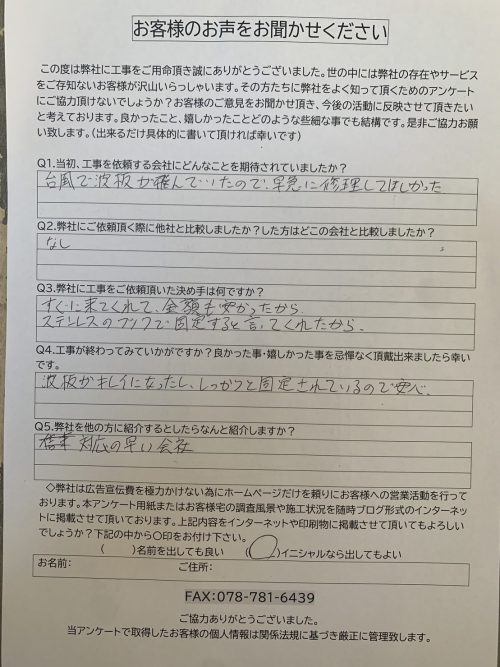 お客様のお声をお聞かせください
この度は弊社に工事をご用命頂き誠にありがとうございました。世の中には弊社の存在やサービス
をご存知ないお客様が沢山いらっしゃいます。その方たちに弊社をよく知って頂くためのアンケート
にご協力頂けないでしょうか？お客様のご意見をお聞かせ頂き、今後の活動に反映させて頂きたい
と考えております。良かったこと、嬉しかったことどのような些細な事でも結構です。是非ご協力お願
い致します。（出来るだけ具体的に書いて頂ければ幸いです）
Q1.当初、工事を依頼する会社にどんなことを期待されていましたか？
台風で波板が飛んでいたので、早急に修理してほしかった
Q2.弊社にご依頼頂く際に他社と比較しましたか？した方はどこの会社と比較しましたか？
なし
Q3.弊社に工事をご依頼頂いた決め手は何ですか？
すぐに来てくれて、金額も安かったから
ステンレスのフックで固定すると言ってくれたから、
Q4.工事が終わってみていかがですか？良かった事・嬉しかった事を忌憚なく頂戴出来ましたら幸い
です。
波板がキレイになったし、しっかりと固定されているので安心、
Q5.弊社を他の方に紹介するとしたらなんと紹介しますか？
対応の早い会社
◇弊社は広告宣伝費を極力かけない為にホームページだけを頼りにお客様への営業活動を行って
おります。本アンケート用紙またはお客様宅の調査風景や施工状況を随時ブログ形式のインターネッ
トに掲載させて頂いております。上記内容をインターネットや印刷物に掲載させて頂いてもよろしい
でしょうか？下記の中から〇印をお付け下さい。
（　　）名前を出しても良い　（〇）イニシャルなら出してもよい
お名前：　ご住所：
FAX:078-781-6439
ご協力ありがとうございました。
当アンケートで取得したお客様の個人情報は関係法規に基づき厳正に管理致します。